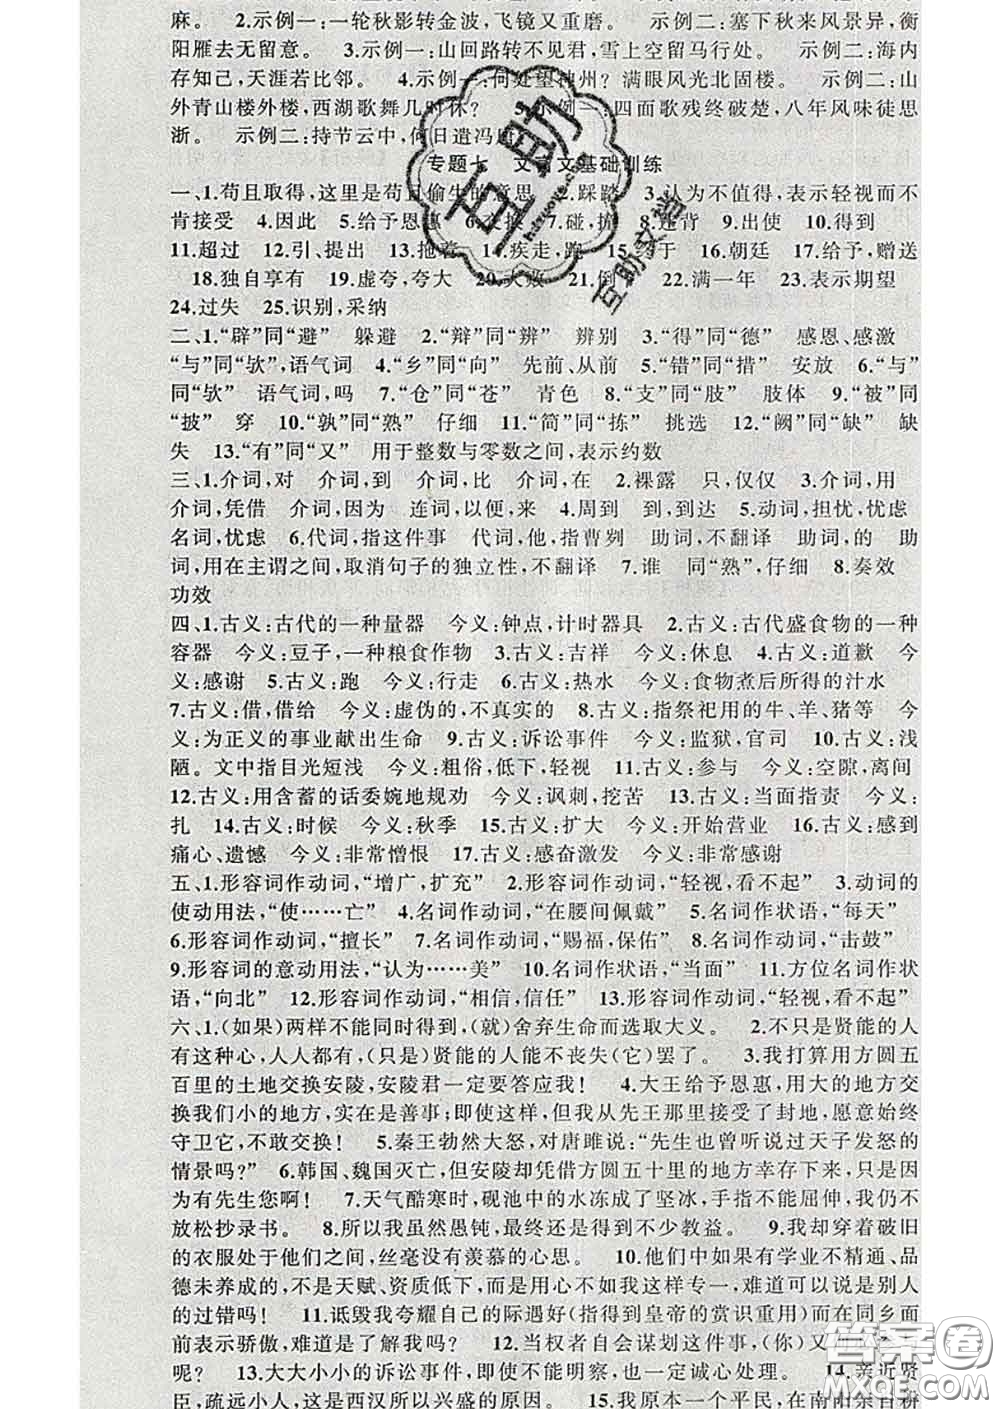 麻。　2.示例一:一轮秋影转金波,飞镜又重磨。　示例二:塞下秋来风景异,衡
阳雁去无留意。　3.示例一:山回路转不见君,雪上空留马行处。　示例二:海内
存知己,天涯若比邻。　4.示例一:何处望神州?满眼风光北固楼。　示例二:山
外青山楼外楼,西湖歌舞几时休?　5.示例一:四面歌残终破楚,八年风味徒思
浙。　示例二:持节云中,何日遣冯唐?
专题七　文言文基础训练
一、1.苟且取得,这里是苟且偷生的意思　2.踩踏　3.认为不值得,表示轻视而不
肯接受　4.因此　5.给予恩惠　6.交换　7.碰,撞　8.违背　9.出使　10.得到
11.超过　12.引、提出　13.拖着　14.疾走,跑　15.终于　16.朝廷　17.给予,赠送
18.独自享有　19.虚夸,夸大　20.大败　21.倒　22.满一年　23.表示期望
24.过失　25.识别,采纳
二、1.“辟”同“避”　躲避　2.“辩”同“辨”　辨别　3.“得”同“德”　感恩、感激
“与”同“欤”,语气词　4.“乡”同“向”　先前、从前　5.“错”同“措”　安放　6.“与”
同“欤”　语气词,吗　7.“仓”同“苍”　青色　8.“支”同“肢”　肢体　9.“被”同
“披”　穿　10.“孰”同“熟”　仔细　11.“简”同“拣”　挑选　12.“阙”同“缺”　缺
失　13.“有”同“又”　用于整数与零数之间,表示约数
三、1.介词,对　介词,到　介词,比　介词,在　2.裸露　只,仅仅　3.介词,用
介词,凭借　介词,因为　连词,以便,来　4.周到　到,到达　5.动词,担忧,忧虑
名词,忧虑　6.代词,指这件事　代词,他,指曹刿　助词,不翻译　助词,的　助
词,用在主谓之间,取消句子的独立性,不翻译　7.谁　同“熟”,仔细　8.奏效
功效
四、1.古义:古代的一种量器　今义:钟点,计时器具　2.古义:古代盛食物的一种
容器　今义:豆子,一种粮食作物　3.古义:吉祥　今义:休息　4.古义:道歉　今
义:感谢　5.古义:跑　今义:行走　6.古义:热水　今义:食物煮后所得的汁水
7.古义:借,借给　今义:虚伪的,不真实的　8.古义:指祭祀用的牛、羊、猪等　今
义:为正义的事业献出生命　9.古义:诉讼事件　今义:监狱,官司　10.古义:浅
陋。文中指目光短浅　今义:粗俗,低下,轻视　11.古义:参与　今义:空隙,离间
12.古义:用含蓄的话委婉地规劝　今义:讽刺,挖苦　13.古义:当面指责　今义:
扎　14.古义:时候　今义:秋季　15.古义:扩大　今义:开始营业　16.古义:感到
痛心、遗憾　今义:非常憎恨　17.古义:感奋激发　今义:非常感谢
五、1.形容词作动词,“增广,扩充”　2.形容词作动词,“轻视,看不起”　3.动词的
使动用法,“使……亡”　4.名词作动词,“在腰间佩戴”　5.名词作状语,“每天”
6.形容词作动词,“擅长”　7.名词作动词,“赐福,保佑”　8.名词作动词,“击鼓”
9.形容词的意动用法,“认为……美”　10.名词作状语,“当面”　11.方位名词作状
语,“向北”　12.形容词作动词,“相信,信任”　13.形容词作动词,“轻视,看不起”
六、1.(如果)两样不能同时得到,(就)舍弃生命而选取大义。　2.不只是贤能的人
有这种心,人人都有,(只是)贤能的人能不丧失(它)罢了。　3.我打算用方圆五
百里的土地交换安陵,安陵君一定要答应我!　4.大王给予恩惠,用大的地方交
换我们小的地方,实在是善事;即使这样,但我从先王那里接受了封地,愿意始终
守卫它,不敢交换!　5.秦王勃然大怒,对唐雎说:“先生也曾听说过天子发怒的
情景吗?”　6.韩国、魏国灭亡,但安陵却凭借方圆五十里的地方幸存下来,只是因
为有先生您啊!　7.天气酷寒时,砚池中的水冻成了坚冰,手指不能屈伸,我仍不
放松抄录书。　8.所以我虽然愚钝,最终还是得到不少教益。　9.我却穿着破旧
的衣服处于他们之间,丝毫没有羡慕的心思。　10.他们中如果有学业不精通、品
德未养成的,不是天赋、资质低下,而是用心不如我这样专一,难道可以说是别人
的过错吗!　11.诋毁我夸耀自己的际遇好(指得到皇帝的赏识重用)而在同乡面
前表示骄傲,难道是了解我吗?　12.当权者自会谋划这件事,(你)又何必参与
呢?　13.大大小小的诉讼事件,即使不能明察,也一定诚心处理。　14.亲近贤
臣,疏远小人,这是西汉所以兴盛的原因。　15.我原本一个平民,在南阳亲自耕
互助
互助文档
答案圈
MXQE.COM